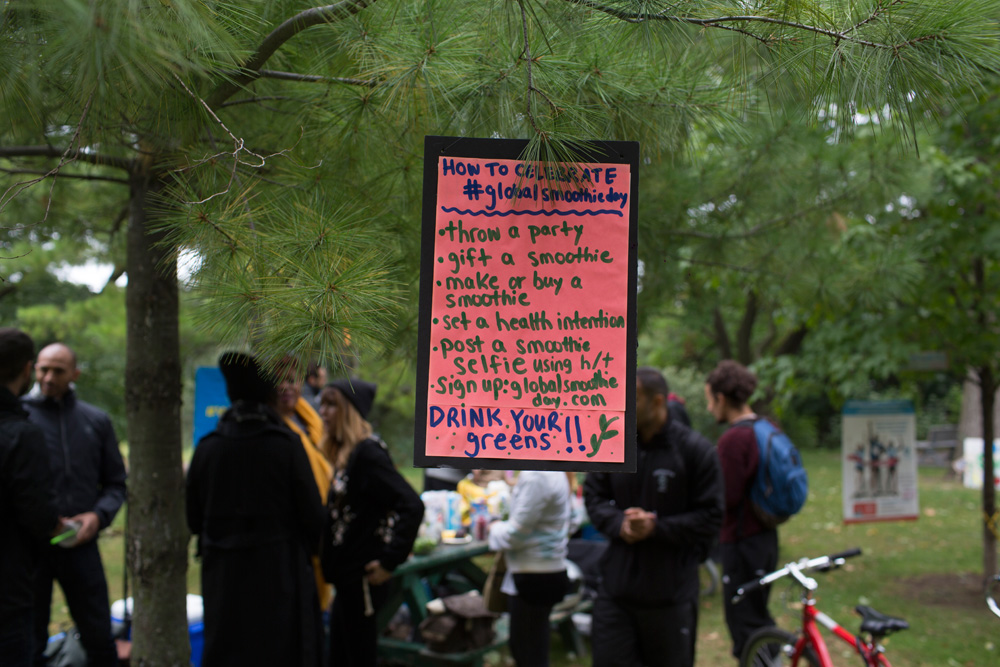 HOW TO CELEBRATE
#globalsmoothieday
•throw a party
•gift a smoothie
•make or buy a
smoothie
•set a health intention
•post a smoothie
selfie using h/t
•Sign up: globalsmoothie
day.com
DRINK YOUR
greens!!